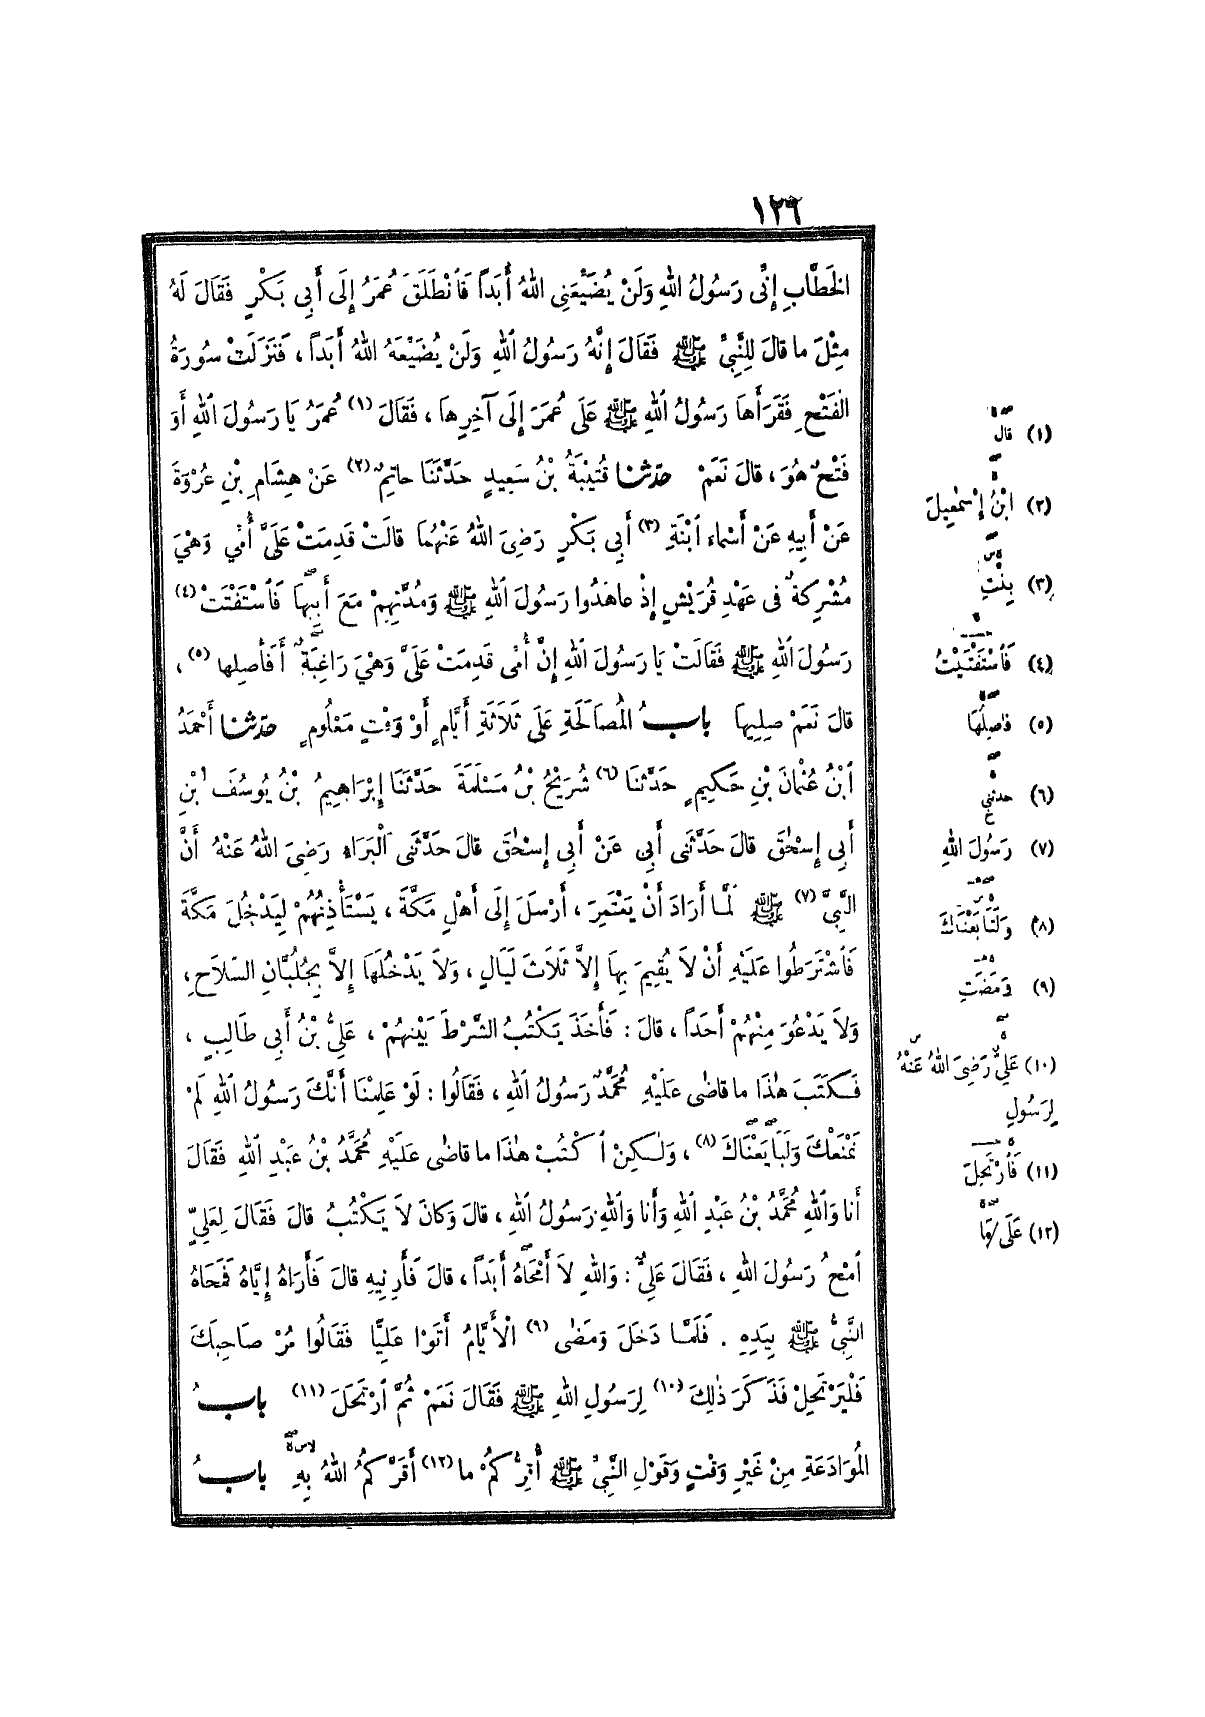 ١٢٦
الخَطَّابِ إِنِّي رَسُولُ اللهِ وَلَنْ يُضَيِّعَنِي اللهُ أَبَداً فَانْطَلَقَ عُمَرُ إِلَى أَبِي بَكْرٍ فَقَالَ لَهُ
مِثْلَ ما قالَ لِلنَّبِيِّ ﷺ فَقَالَ إِنَّهُ رَسُولُ اللهِ وَلَنْ يُضَيِّعَهُ اللهُ أَبَداً ، فَنَزَلَتْ سُورَةُ
الْفَتْحِ فَقَرَأَها رَسُولُ اللهِ ﷺ عَلَى عُمَرَ إِلَى آخِرِهَا ، فَقَالَ (١) عُمَرُ يَا رَسُولَ اللهِ أَوَ
فَتْحٌ هُوَ ، قالَ نَعَمْ حدّثنا قُتَيْبَةُ بْنُ سَعِيدٍ حَدَّثَنَا حاتِمٌ (٢) عَنْ هِشَامِ بْنِ عُرْوَةَ
عَنْ أَبِيهِ عَنْ أَسْماءَ ابْنَةِ (٣) أَبِي بَكْرٍ رَضِيَ اللهُ عَنْهُمَا قالَتْ قَدِمَتْ عَلَيَّ أُمِّي وَهْيَ
مُشْرِكَةٌ فِي عَهْدِ قُرَيْشٍ إِذْ عاهَدُوا رَسُولَ اللهِ ﷺ وَمُدَّتِهِمْ مَعَ أَبِيهَا فَاسْتَفْتَتْ (٤)
رَسُولَ اللهِ ﷺ فَقَالَتْ يَا رَسُولَ اللهِ إِنَّ أُمِّي قَدِمَتْ عَلَيَّ وَهْيَ رَاغِبَةٌ أَفَأَصِلُها (٥) ،
قالَ نَعَمْ صِلِيهَا بابُ المُصَالَحَةِ عَلَى ثَلَاثَةِ أَيَّامٍ أَوْ وَقْتٍ مَعْلُومٍ حدّثنا أَحْمَدُ
ابْنُ عُثْمانَ بْنِ حَكِيمٍ حَدَّثَنَا (٦) شُرَيْحُ بْنُ مَسْلَمَةَ حَدَّثَنَا إِبْرَاهِيمُ بْنُ يُوسُفَ بْنِ
أَبِي إِسْحٰقَ قالَ حَدَّثَنِي أَبِي عَنْ أَبِي إِسْحٰقَ قالَ حَدَّثَنِي الْبَرَاءُ رَضِيَ اللهُ عَنْهُ أَنَّ
النَّبِيَّ (٧) ﷺ لَمَّا أَرَادَ أَنْ يَعْتَمِرَ ، أَرْسَلَ إِلَى أَهْلِ مَكَّةَ ، يَسْتَأْذِنُهُمْ لِيَدْخُلَ مَكَّةَ
فَاشْتَرَطُوا عَلَيْهِ أَنْ لاَ يُقِيمَ بِهَا إِلاَّ ثَلاَثَ لَيَالٍ ، وَلاَ يَدْخُلَهَا إِلاَّ بِجُلُبَّانِ السِّلاَحِ ،
وَلاَ يَدْعُوَ مِنْهُمْ أَحَداً ، قالَ : فَأَخَذَ يَكْتُبُ الشَّرْطَ بَيْنَهُمْ ، عَلِيُّ بْنُ أَبِي طَالِبٍ ،
فَكَتَبَ هٰذَا ما قاضٰى عَلَيْهِ مُحَمَّدٌ رَسُولُ اللهِ ، فَقَالُوا : لَوْ عَلِمْنَا أَنَّكَ رَسُولُ اللهِ لَمْ
نَمْنَعْكَ وَلَبَايَعْنَاكَ (٨) ، وَلٰكِنْ اكْتُبْ هٰذَا ما قاضٰى عَلَيْهِ مُحَمَّدُ بْنُ عَبْدِ اللهِ فَقَالَ
أَنا وَاللهِ مُحَمَّدُ بْنُ عَبْدِ اللهِ وَأَنا وَاللهِ رَسُولُ اللهِ ، قالَ وَكانَ لاَ يَكْتُبُ قالَ فَقَالَ لِعَلِيٍّ
امْحُ رَسُولَ اللهِ ، فَقَالَ عَلِيٌّ : وَاللهِ لاَ أَمْحَاهُ أَبَداً ، قالَ فَأَرِنِيهِ قالَ فَأَرَاهُ إِيَّاهُ فَمَحَاهُ
النَّبِيُّ ﷺ بِيَدِهِ . فَلَمَّا دَخَلَ وَمَضٰى (٩) الْأَيَّامُ أَتَوْا عَلِيًّا فَقَالُوا مُرْ صَاحِبَكَ
فَلْيَرْتَحِلْ فَذَكَرَ ذٰلِكَ (١٠) لِرَسُولِ اللهِ ﷺ فَقَالَ نَعَمْ ثُمَّ ارْتَحَلَ (١١) بابُ
المُوَادَعَةِ مِنْ غَيْرِ وَقْتٍ وَقَوْلِ النَّبِيِّ ﷺ أُقِرُّكُمْ ما (١٢) أَقَرَّكُمُ اللهُ بِهِ بابُ
(١) قال
(٢) ابْنُ إِسْمٰعِيلَ
(٣) بِنْتِ
(٤) فَاسْتَفْتَيْتُ
(٥) فأصِلُهَا
(٦) حدثني
(٧) رَسُولَ اللهِ
(٨) وَلَتَابَعْنَاكَ
(٩) وَمَضَتِ
(١٠) عَلِيٌّ رَضِيَ اللهُ عَنْهُ
لِرَسُولِ
(١١) فَارْتَحَلَ
(١٢) عَلَى مَا